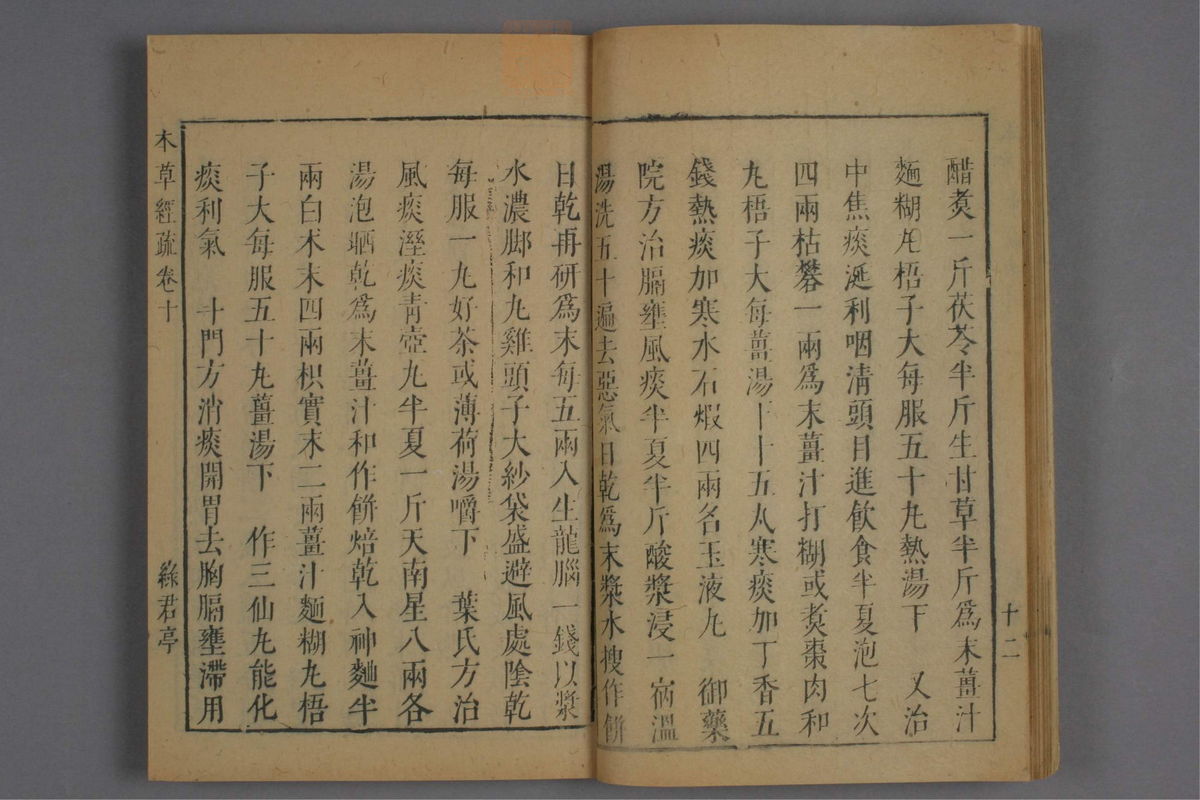 醋煑一斤茯苓半斤生甘草半斤爲末薑汁
麵糊丸梧子大每服五十丸熱湯下　又治
中焦痰涎利咽清頭目進飲食半夏泡七次
四兩枯礬一兩爲末薑汁打糊或煑棗肉和
丸梧子大每薑湯下十五丸寒痰加丁香五
錢熱痰加寒水石煆四兩名玉液丸　御藥
院方治膈壅風痰半夏半斤酸漿浸一宿溫
湯洗五十遍去惡氣日乾爲末漿水搜作餅
十二
日乾再研爲末每五兩入生龍腦一錢以漿
水濃脚和丸雞頭子大紗袋盛避風處陰乾
每服一丸好茶或薄荷湯嚼下　葉氏方治
風痰溼痰青壺丸半夏一斤天南星八兩各
湯泡晒乾爲末薑汁和作餅焙乾入神麯半
兩白术末四兩枳實末二兩薑汁麵糊丸梧
子大每服五十丸薑湯下　作三仙丸能化
痰利氣　斗門方消痰開胃去胸膈壅滯用
本草經疏卷十
綠君亭